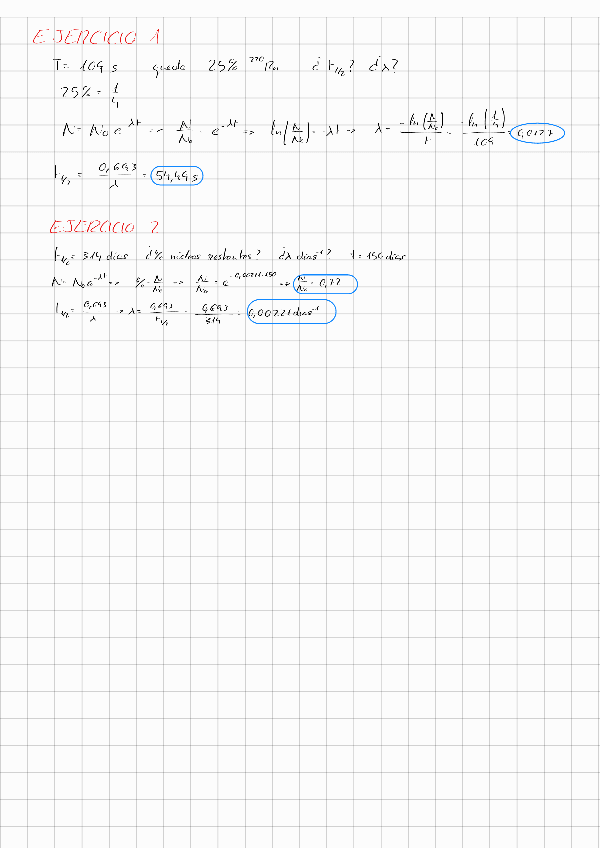 EJERCICIO 1
T= 109 s queda 25% ²²⁰Rn ¿t₁/₂? ¿λ?
25% = 1/4
N = N₀ e^-λt → N/N₀ = e^-λt → ln(N/N₀) = -λt → λ = -ln(N/N₀)/t = -ln(1/4)/109 = 0,0127
t₁/₂ = 0,693/λ = 54,49 s
EJERCICIO 2
t₁/₂ = 314 días ¿% núcleos restantes? ¿λ días⁻¹? t = 150 días
N = N₀ e^-λt → % = N/N₀ → N/N₀ = e^-0,00221·150 → N/N₀ = 0,72
t₁/₂ = 0,693/λ → λ = 0,693/t₁/₂ = 0,693/314 = 0,00221 días⁻¹